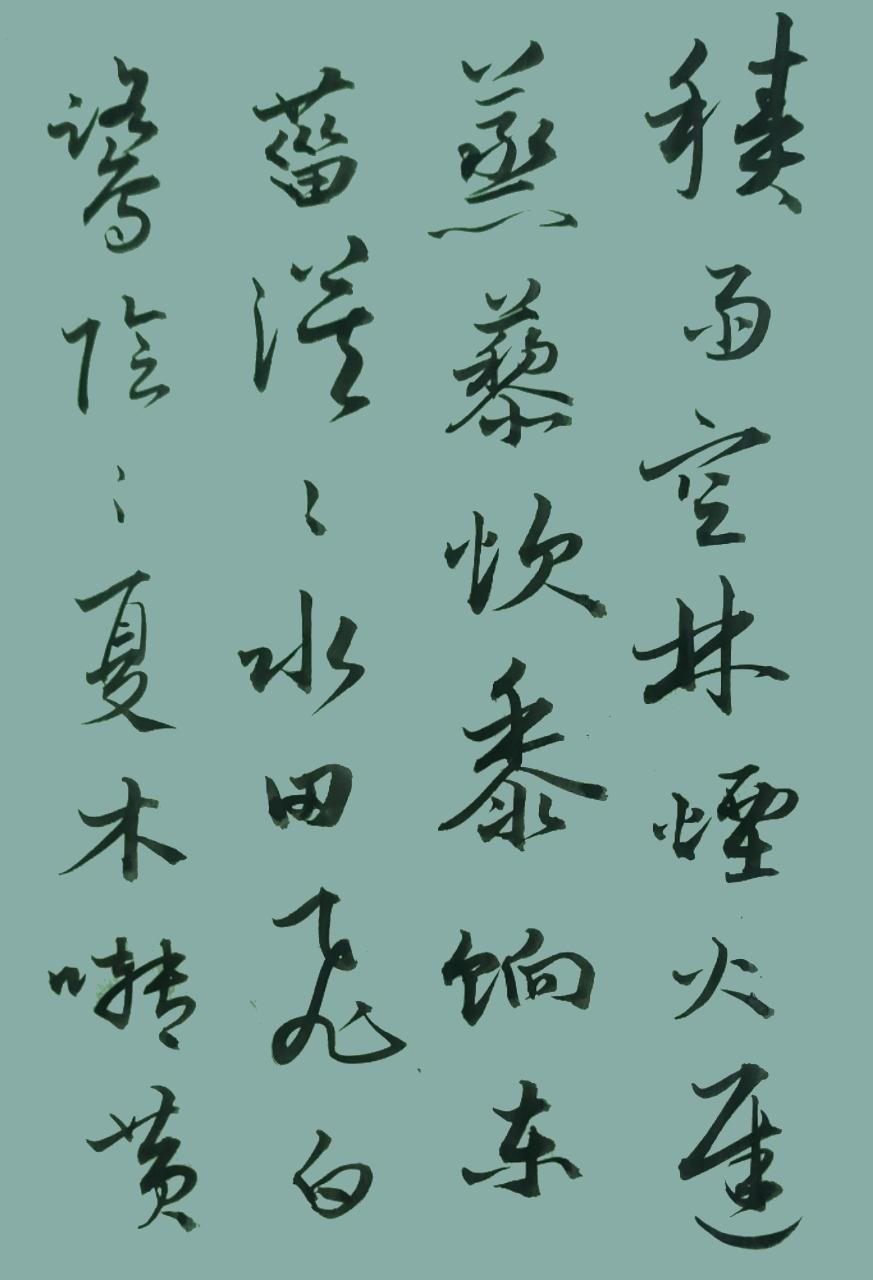 積雨空林煙火遲
蒸藜炊黍餉东
菑漠〻水田飛白
鷺陰〻夏木囀黄